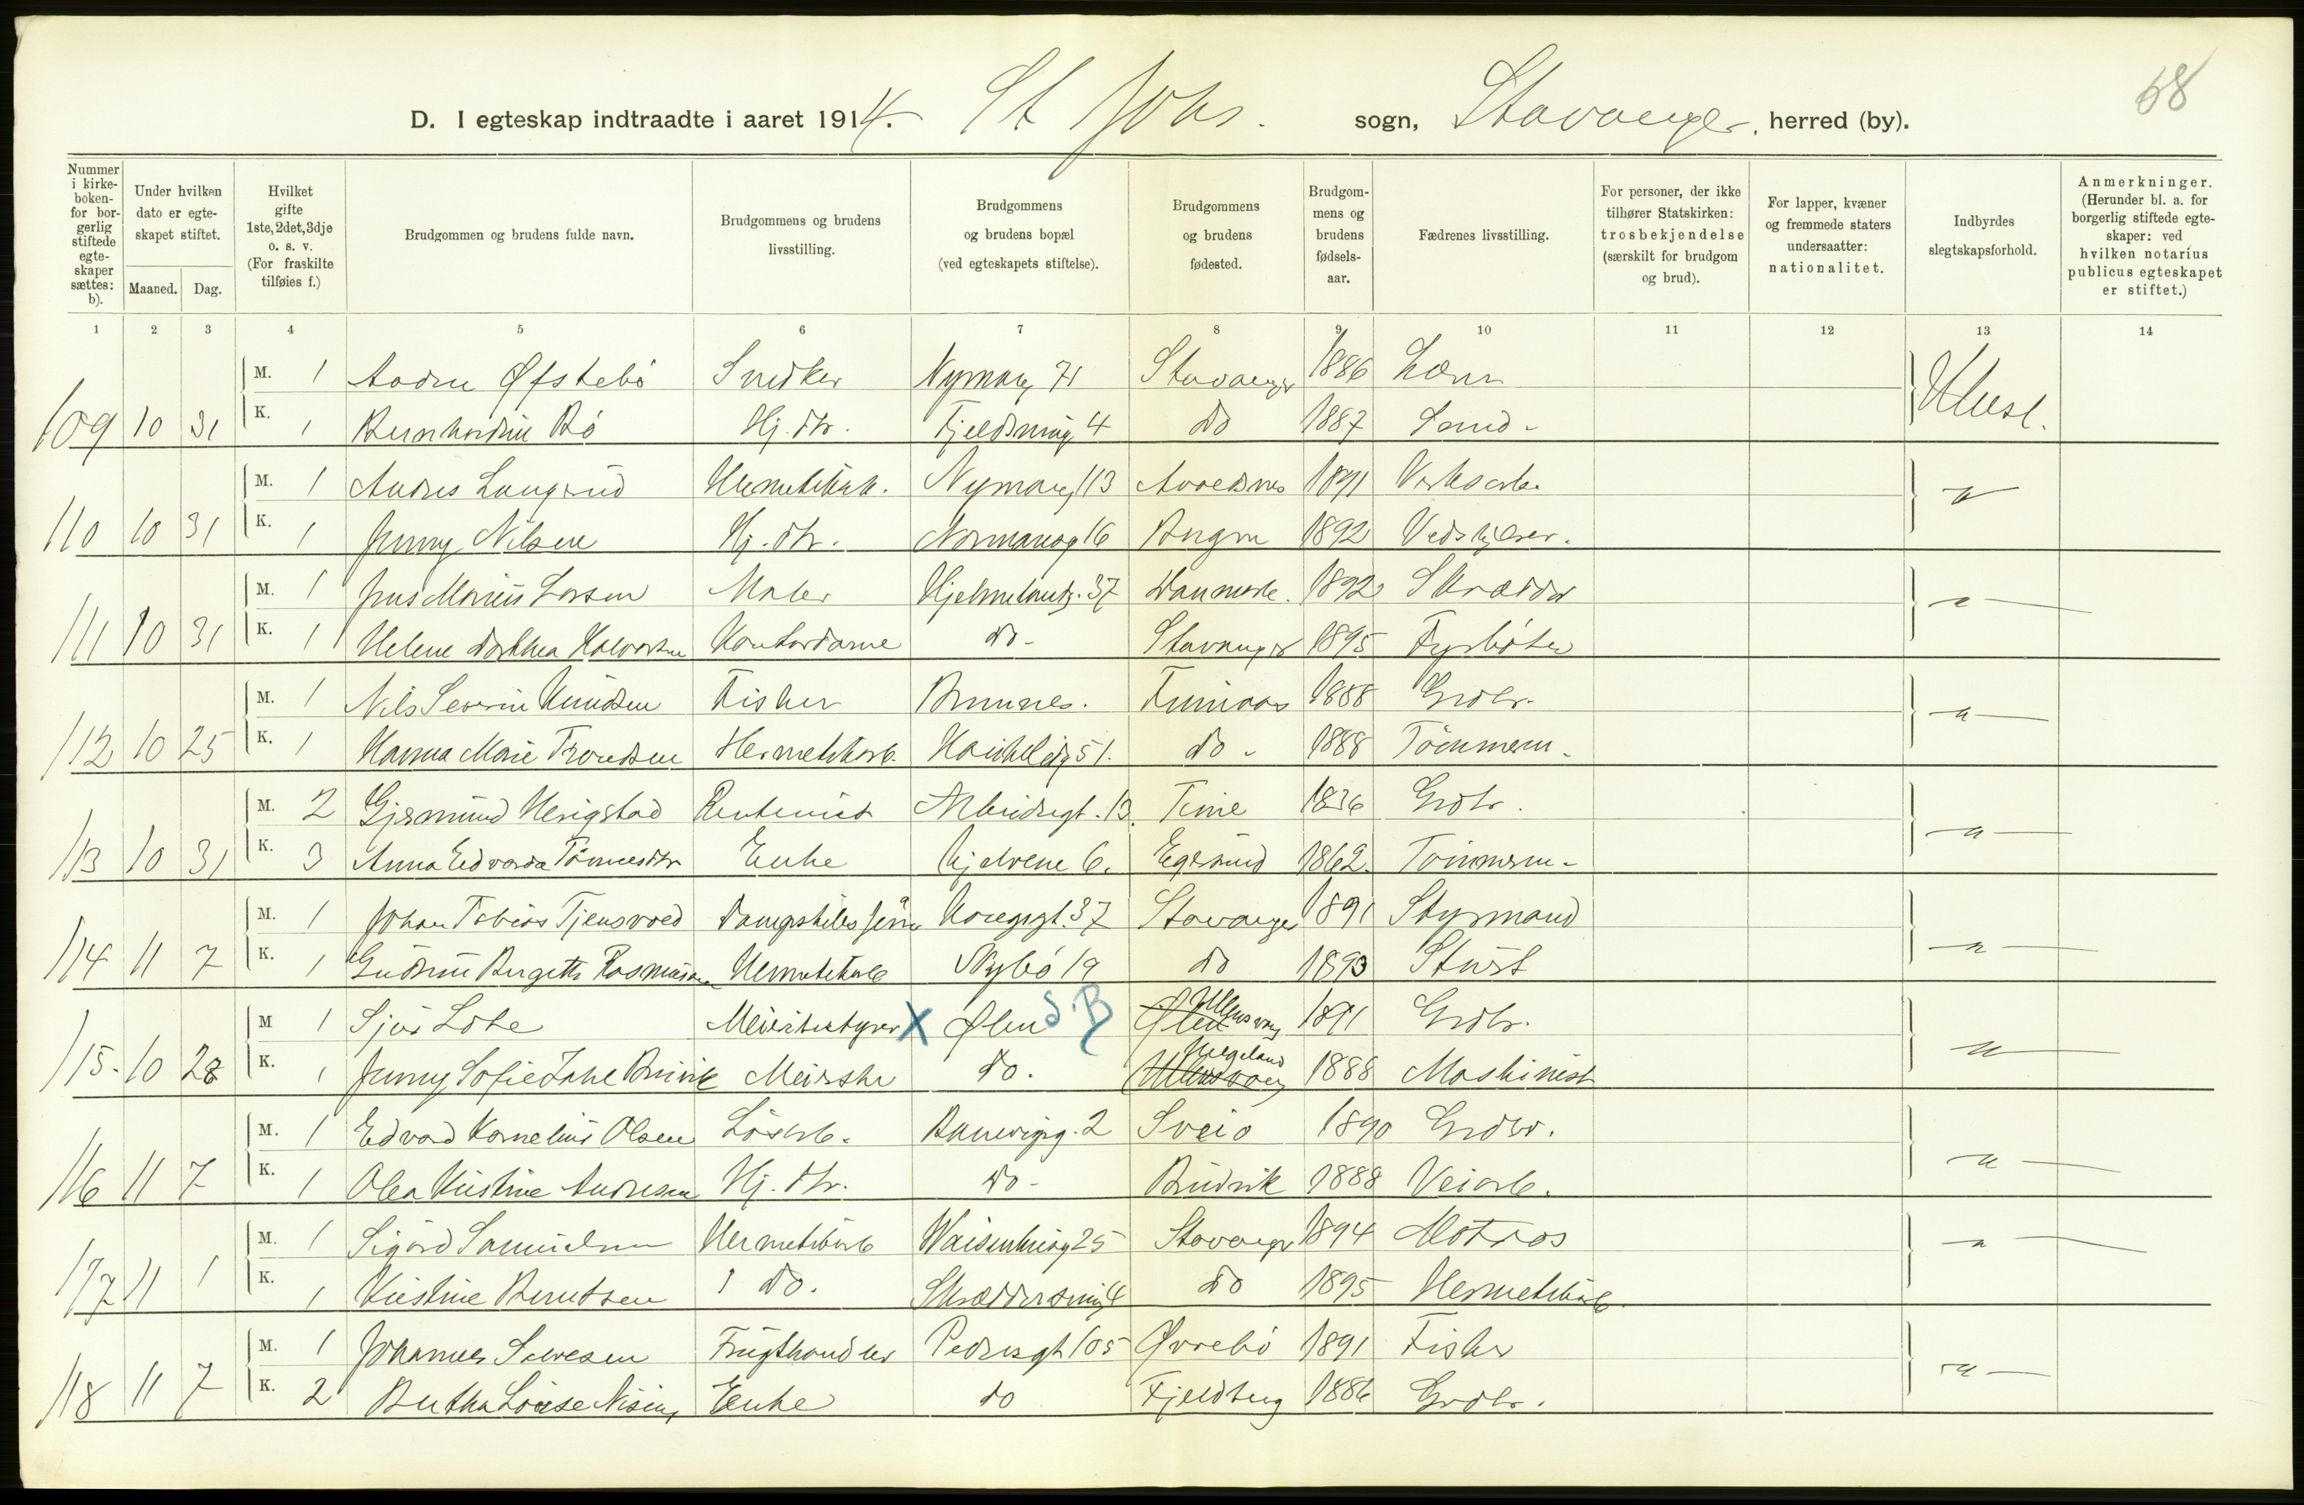 68
D. I egteskap indtraadte i aaret 1914. St Johs. sogn, Stavanger, herred (by).
Nummer i kirke-boken- for bor-gerlig stiftede egte-skaper sættes: b).
Under hvilken dato er egte-skapet stiftet.
Maaned. Dag.
Hvilket gifte 1ste, 2det, 3dje o. s. v. (For fraskilte tilføies f.)
Brudgommen og brudens fulde navn.
Brudgommens og brudens livsstilling.
Brudgommens og brudens bopæl (ved egteskapets stiftelse).
Brudgommens og brudens fødested.
Brudgom-mens og brudens fødsels-aar.
Fædrenes livsstilling.
For personer, der ikke tilhører Statskirken: trosbekjendelse (særskilt for brudgom og brud).
For lapper, kvæner og fremmede staters undersaatter: nationalitet.
Indbyrdes slegtskapsforhold.
Anmerkninger. (Herunder bl. a. for borgerlig stiftede egte-skaper: ved hvilken notarius publicus egteskapet er stiftet.)
1 2 3 4 5 6 7 8 9 10 11 12 13 14
M. 1 Øfstebö Snedker Nymarg 71 Stavanger 1886
109 10 31 K. 1 Bernhardine Bö Hj. dtr. 4 do 1887
M. 1 Andres Nymarg 113 Avaldsnes 1891
110 10 31 K. 1 Jenny Nilsen Hj. dtr. 16 Bergen 1892
M. 1 Jens Marius Larsen Maler Hjelmelandg. 37 Danmark. 1892 Skrædder
111 10 31 K. 1 Helene Dorthea Halvorsen Kontordame do- Stavanger 1895 Fyrböter
M. 1 Nils Severin Knudsen Fisker 1888 Grdbr.
112 10 25 K. 1 Hanna Marie Trondsen Hermetikarb. 51. do- 1888 Tömmerm.
M. 2 Gjermund Herigstad Rentenist Arbeidergt. 13. Time 1836 Grdbr.
113 10 31 K. 3 Anna Edvarda Tönnesdtr Enke 6. Egersund 1862 Tömmerm-
M. 1 Johan Tobias Tjensvold 37 Stavanger 1891 Styrmand
114 11 7 K. 1 Gudrun Bergitte Rasmussen Hermetikarb Nybö 19 do 1893 Stuert
M 1 Lote Meieribestyrer X Ølen S.B Ølen Ullensvang 1891 Grdbr.
115. 10 28 K. 1 Jenny Sofie Meierske do. Ullensvang Helgeland 1888 Maskinist
M. 1 Edvard Kornelius Olsen Lösarb. Banevigsg. 2 Sveio 1890 Grdbr.
116 11 7 K. 1 Olea Kristine Andresen Hj. dtr. do- 1888 Veiarb.
M. 1 Sigurd Samuelsen Hermetikarb 25 Stavanger 1894 Matros
117 11 1 K. 1 Kristine Berntsen do. 4 do 1895 Hermetikarb.
M. 1 Johannes Salvesen Frugthandler Pedersgt 105 Øvrebö 1891 Fisker
118 11 7 K. 2 Bertha Lovise Enke do Fjeldberg 1886 Grdbr.